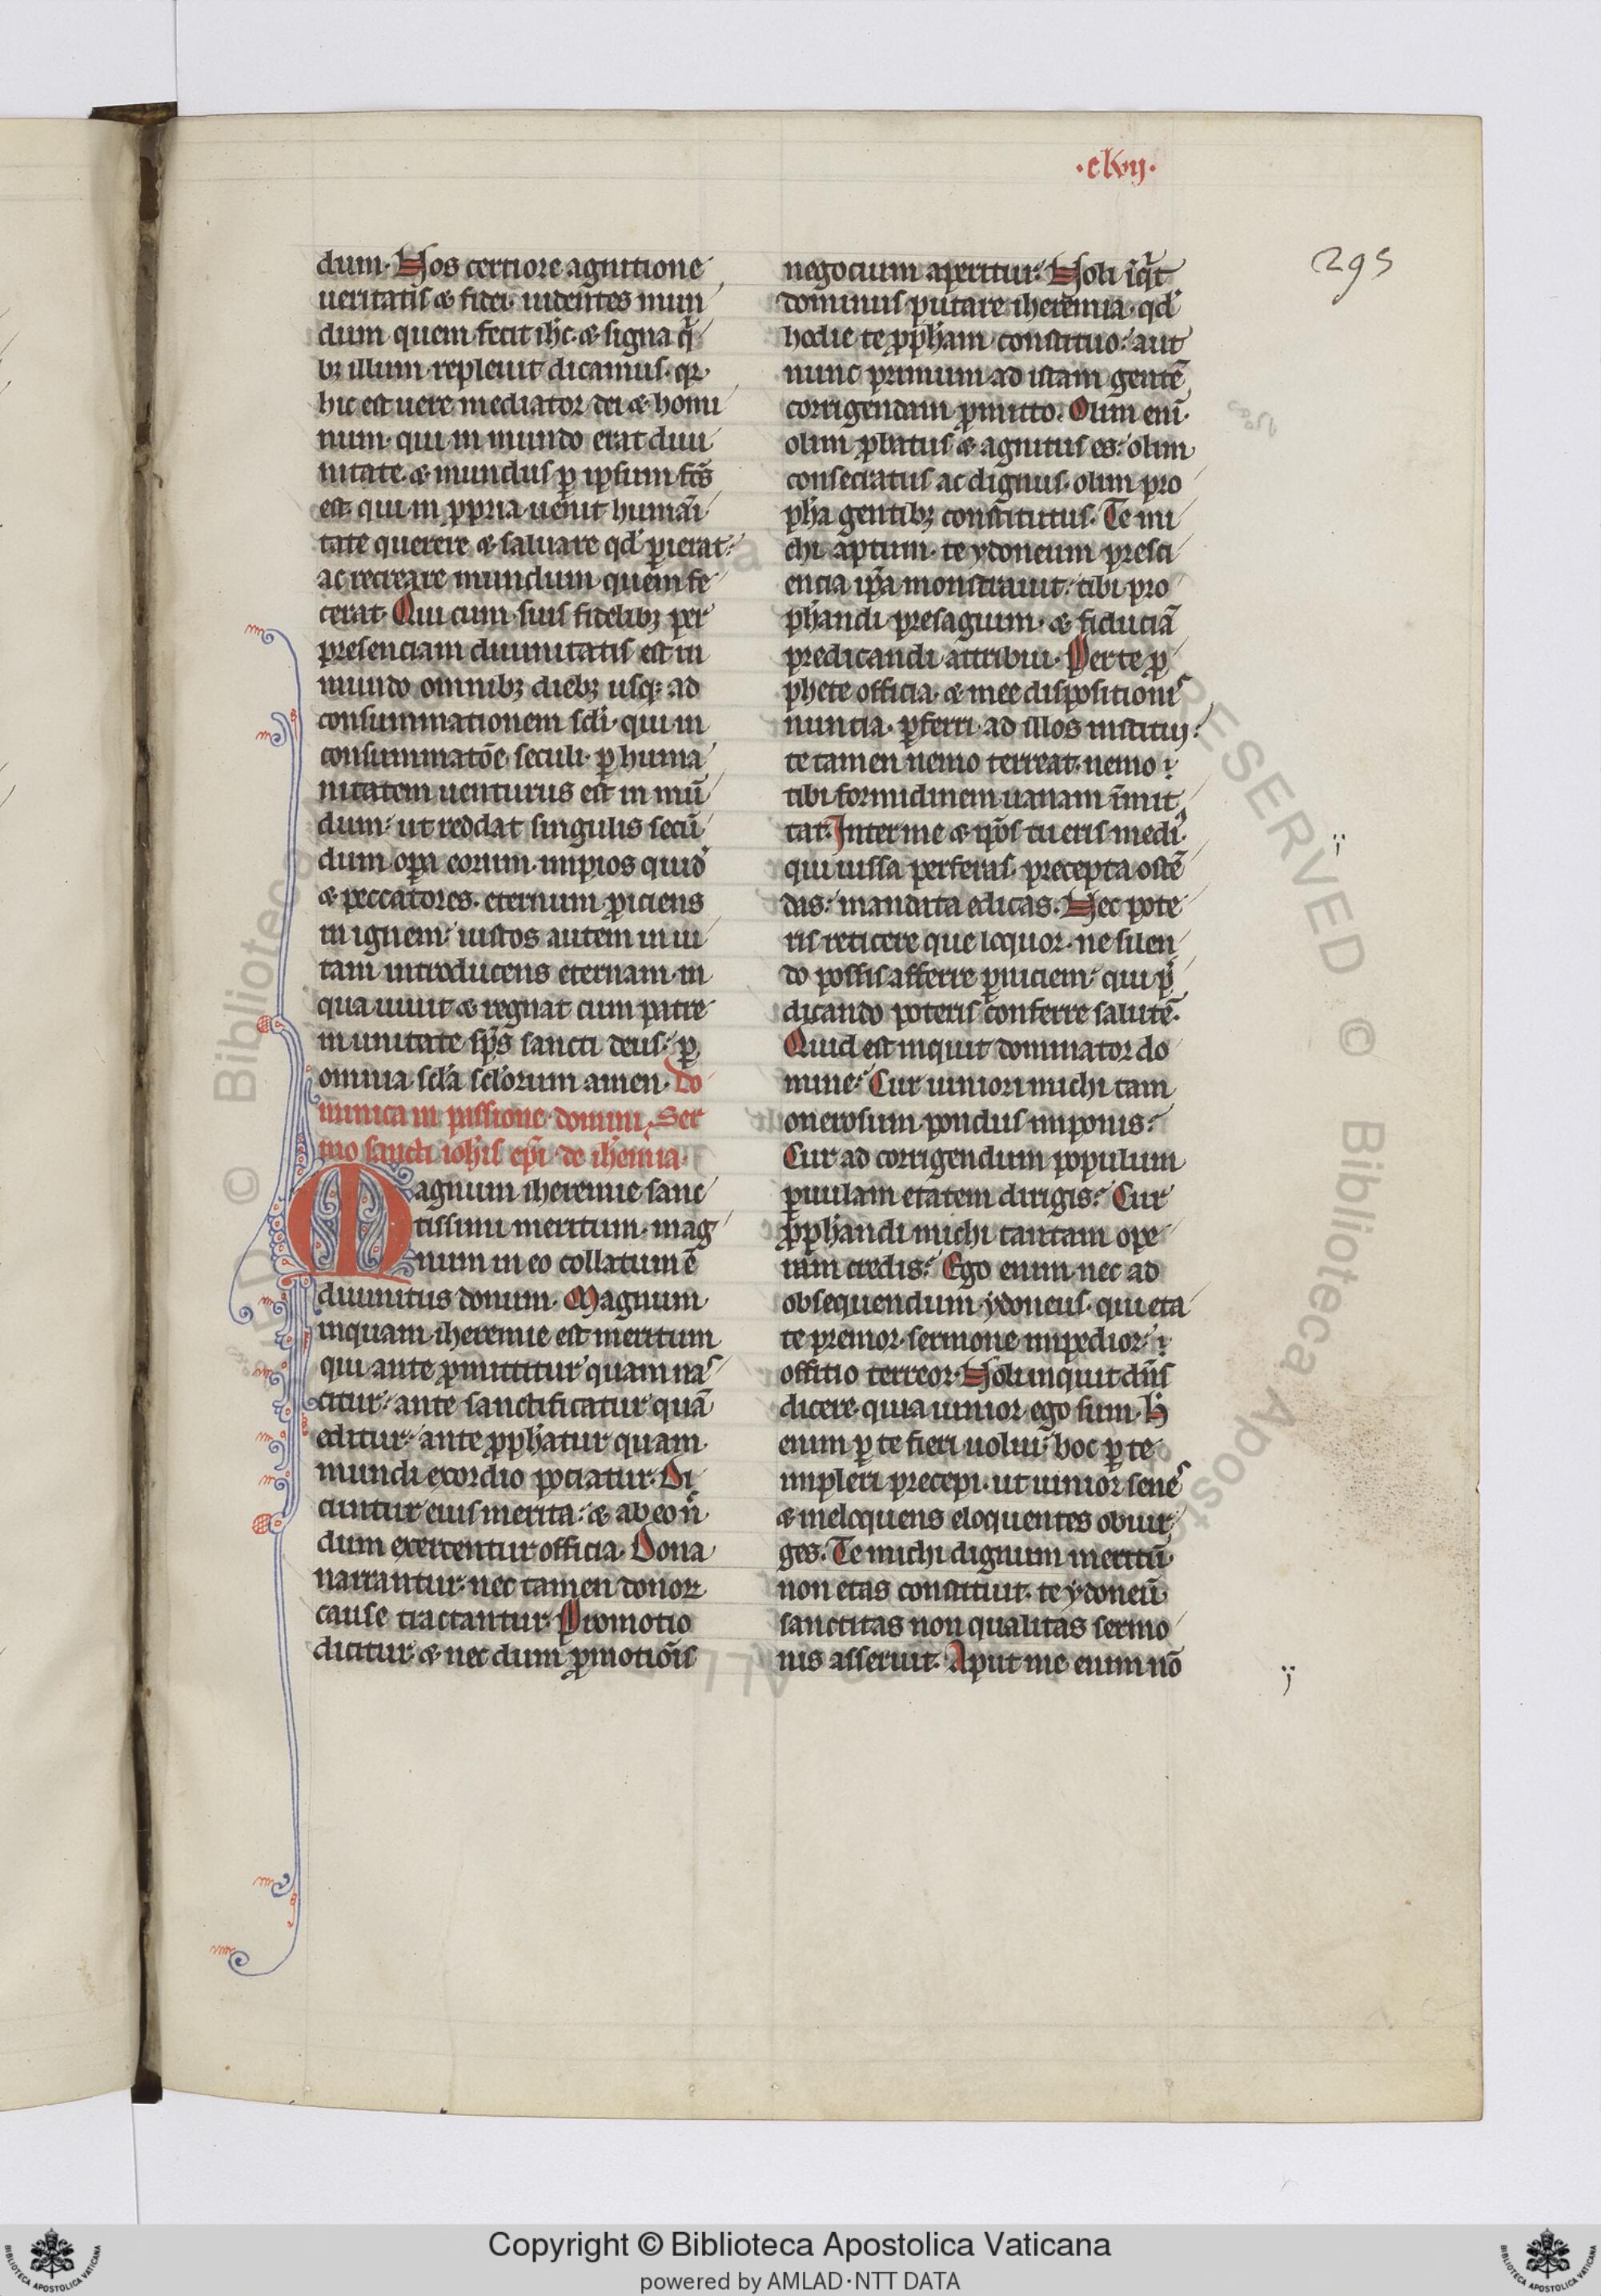 ·clvij·
295
dum. Nos certiore agnitione
ueritatis & fidei. uidentes mun
dum quem fecit ihc̄. & signa q̄
bꝫ illum repleuit dicamus. qꝛ
hic est uere mediator dei & homi
num. qui in mundo erat diui
nitate. & mundus ꝑ ipsum fc̄s
est. qui in ꝓpria uenit humāi
tate querere & saluare qd̓ ꝑierat.
ac recreare mundum quem fe
cerat. Qui cum suis fidelibꝫ per
presenciam diuinitatis est in
mundo omnibꝫ diebꝫ usqꝫ ad
consummationem sc̄li. qui in
consummatōe seculi. ꝑ huma
nitatem uenturus est in mū
dum. ut reddat singulis secū
dum oꝑa eorum. impios quid̓
& peccatores. eternum ꝓiciens
in ignem. iustos autem in ui
tam introducens eternam. in
qua uiuit & regnat cum patre
in unitate sp̄s sancti deus. ꝑ
omnia scl̄a scl̄orum amen. Do
minica in passione domini. Ser
mo sancti ioh̄is ep̄i de ih̓emia.
Magnum iheremie sanc
tissimi meritum. mag
num in eo collatum ē
diuinitus donum. Magnum
inquam iheremie est meritum
qui ante ꝓmittitur quam nas
citur. ante sanctificatur quā
editur. ante ꝓph̄atur quam
mundi exordio pociatur. Di
cuntur eius merita. & ab eo n̄
dum exercentur officia. Dona
narrantur. nec tamen donoꝝ
cause tractantur. Promotio
dicitur. & nec dum ꝓmotiōis
negocium aperitur. Noli īq̇t
dominus putare iheremia. qd̓
hodie te ꝓph̄am constituo. aut
nunc primum ad istam gentē
corrigendam ꝓmitto. Olim eni̅
olim ꝓlatus & agnitus es. olim
consecratus ac dignus. olim pro
ph̄a gentibꝫ constitutus. Te mi
chi aptum. te ydoneum presci
encia ip̄a monstrauit. tibi pro
ph̄andi presagium. & fiduciā
predicandi attribui. Per te ꝓ
phete officia. & mee dispositionis
nuncia. ꝓferri ad illos institui.
te tamen nemo terreat. nemo
tibi formidinem uanam īmit
tat. Inter me & ip̄os tu eris medi᷒
qui iussa perferas. precepta ostē
das. mandata edicas. Nec pote
ris reticere que loquor. ne silen
do possis afferre ꝑniciem. qui p̄
dicando poteris conferre salutē.
Quid est inquit dominator do
mine. Cur iuniori michi tam
onerosum pondus imponis.
Cur ad corrigendum populum
ꝑuulam etatem dirigis. Cur
ꝓph̄andi michi tantam ope
ram credis. Ego enim nec ad
obsequendum ydoneus. qui eta
te premor. sermone impedior.
offitio terreor. Noli inquit dn̄s
dicere. quia iunior ego sum. H̓
enim ꝑ te fieri uolui. hoc ꝑ te
impleri precepi. ut iunior senes
& meloquens eloquentes obiur
ges. Te michi dignum meritū
non etas constituit. te ydoneū
sanctitas non qualitas sermo
nis asseruit. Aput me enim nō
© Biblioteca Apostolica
Copyright © Biblioteca Apostolica Vaticana
powered by AMLAD·NTT DATA